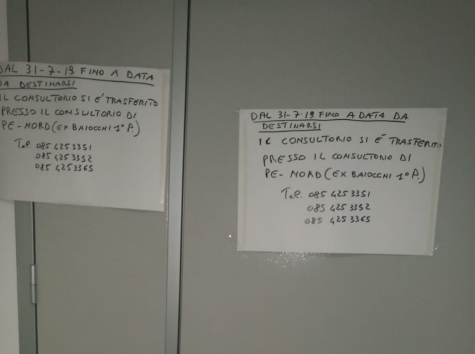 DAL 31-7-19 FINO A DATA
DA DESTINARSI
IL CONSULTORIO SI È TRASFERITO
PRESSO IL CONSULTORIO DI
PE-NORD (EX BAIOCCHI 1° P.)
Tel. 085 4253351
085 4253352
085 4253365
DAL 31-7-19 FINO A DATA DA
DESTINARSI
IL CONSULTORIO SI È TRASFERITO
PRESSO IL CONSULTORIO DI
PE-NORD (EX BAIOCCHI 1° P.)
Tel. 085 4253351
085 4253352
085 4253365